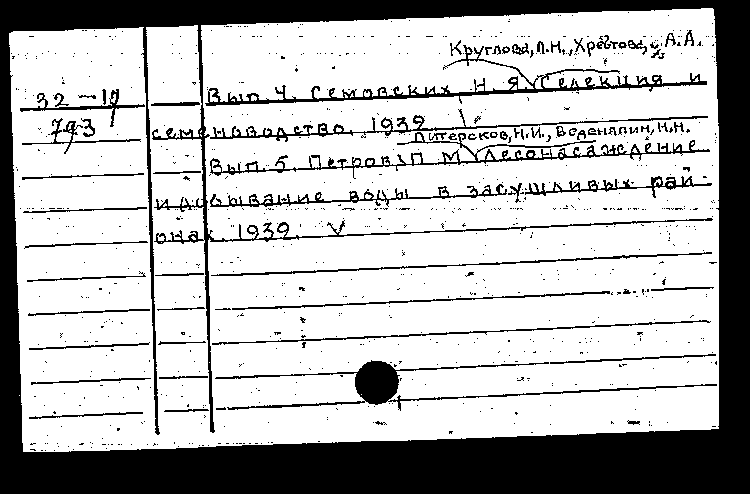 Круглова, П.Н., Хребтова, А.А.
32-17 Вып. 4. Семовских Н. Я. Селекция и
793 семеноводство. 1939
Питерсков, Н.И., Веденяпин, Н.Н.
Вып. 5. Петров, П М Лесонасаждение
и добывание воды в засушливых рай-
онах. 1939. V